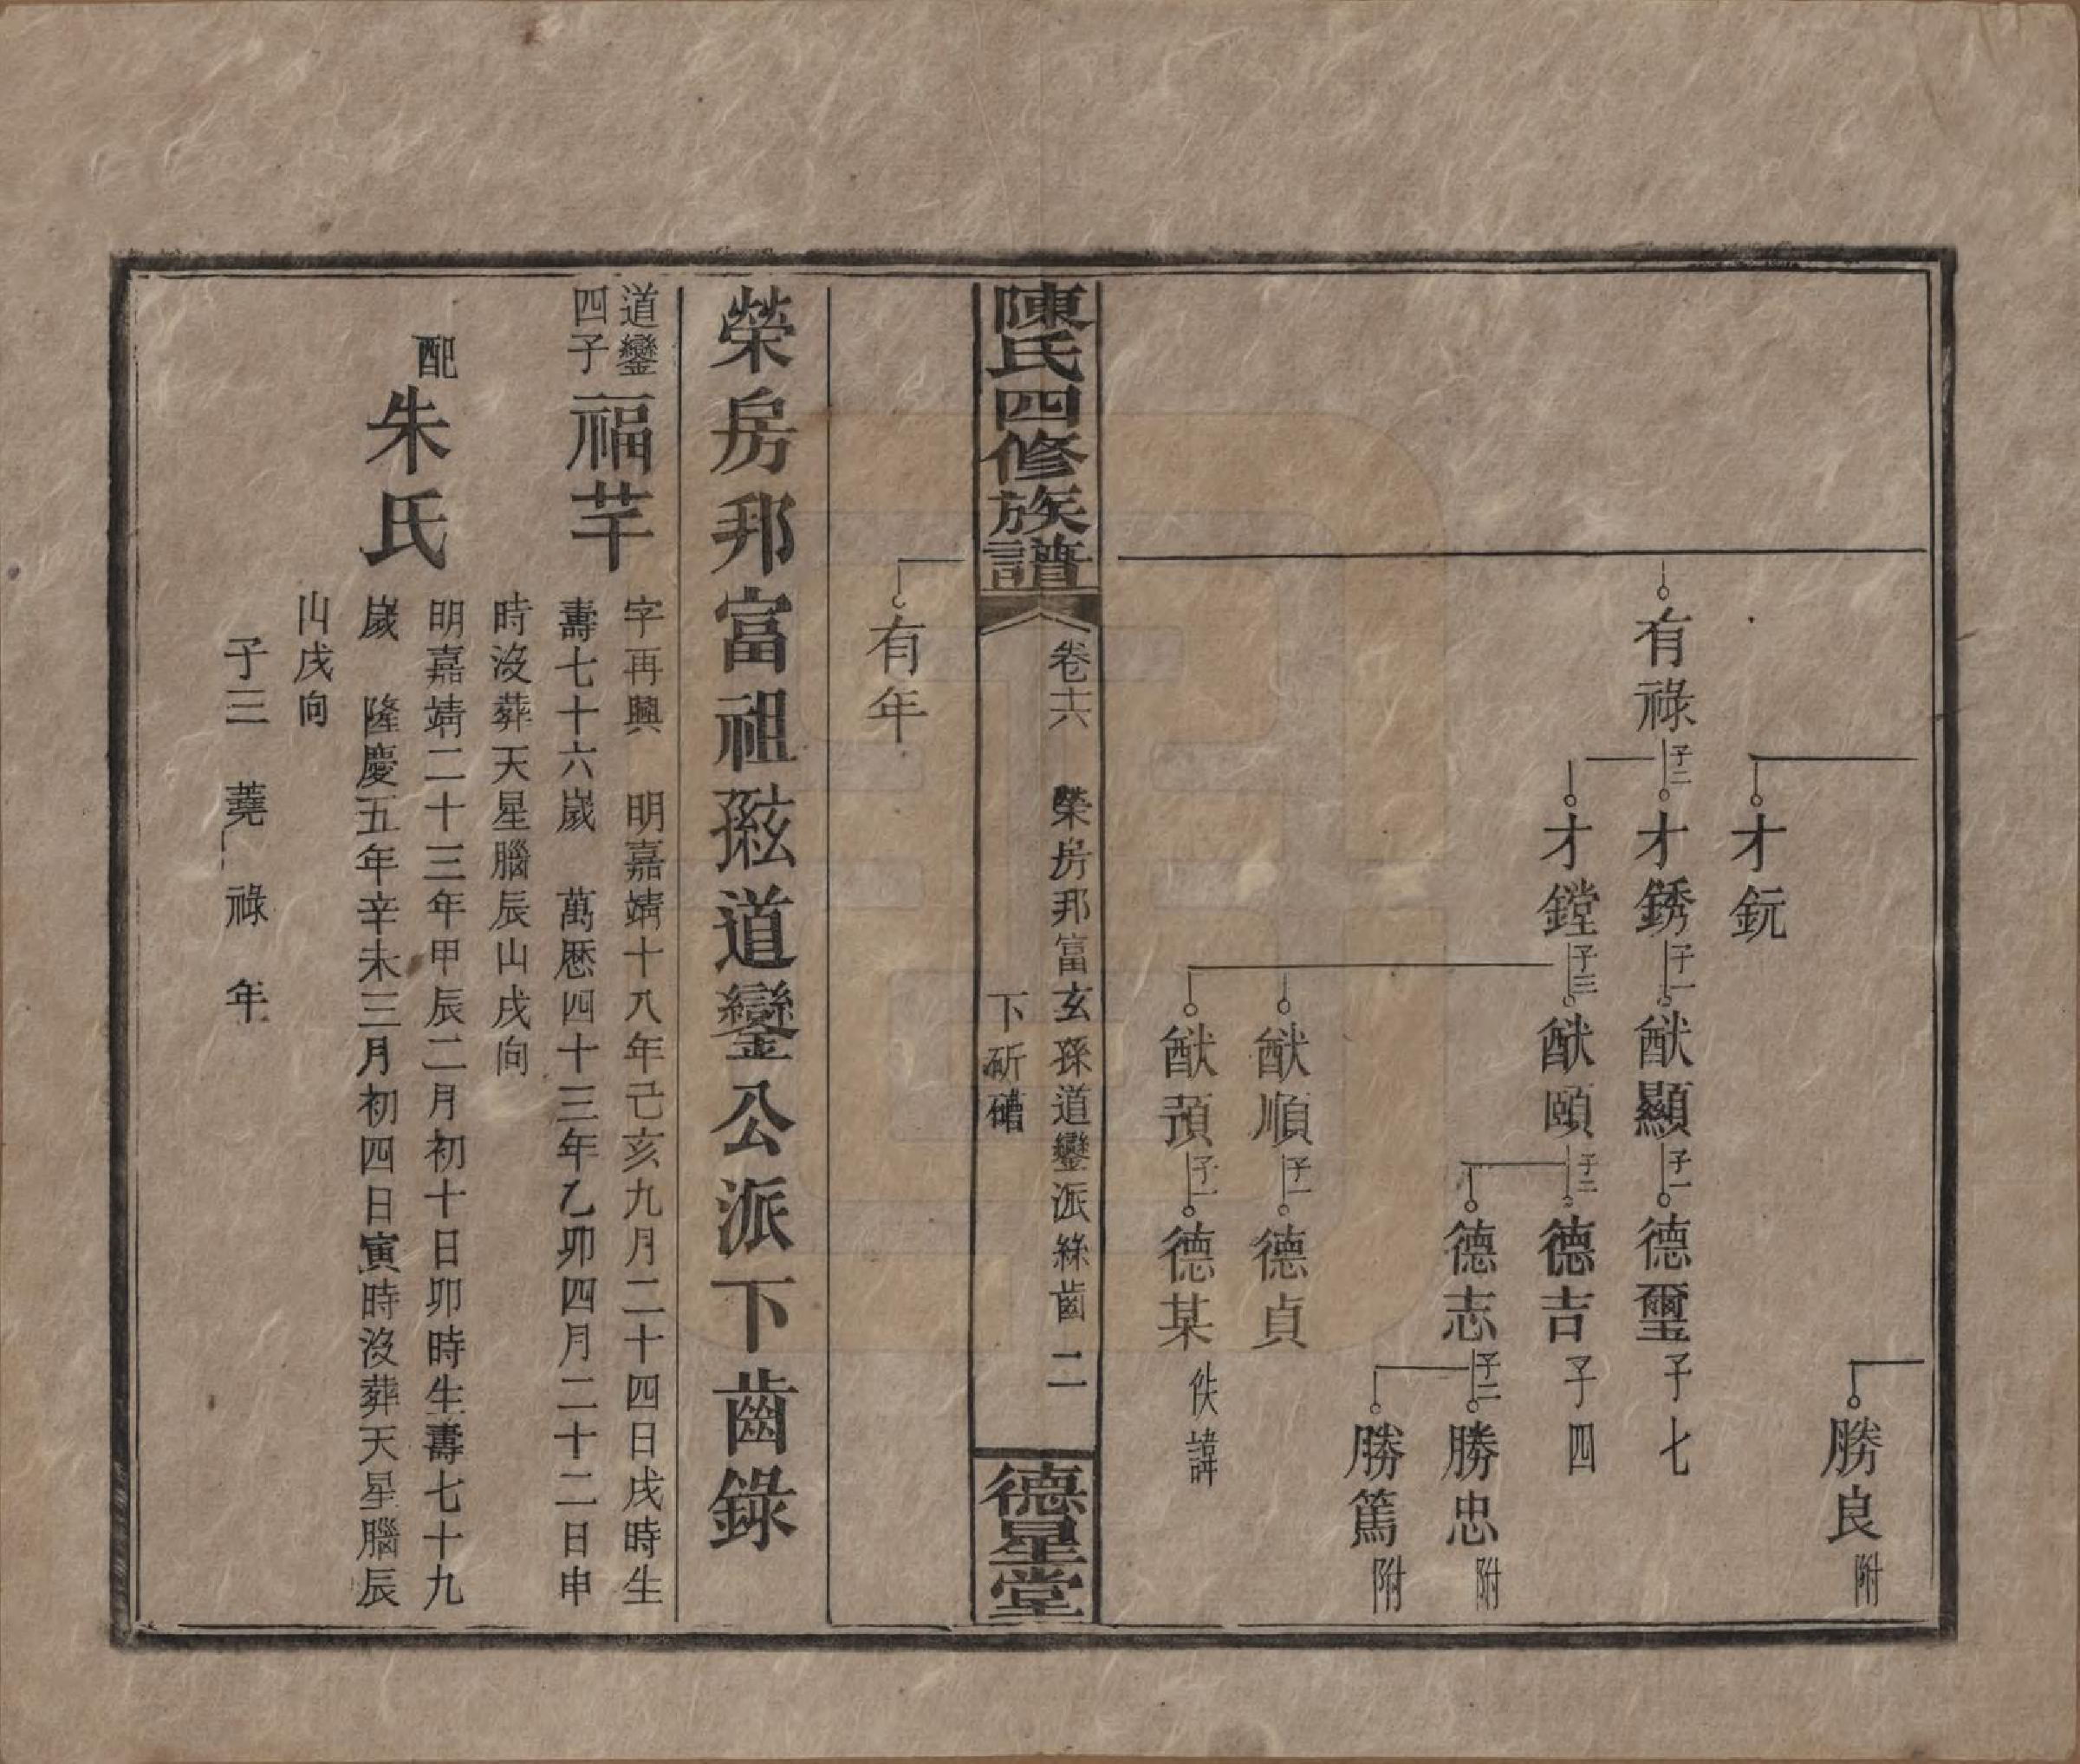 勝良附
才鈨
有祿子二
才銹子一
猷顯子一
德璽子七
才鏜子三
猷頤子二
德吉子四
德志子二
勝忠附
勝篤附
猷順子一
德貞
猷預子一
德某佚諱
陳氏四修族譜
卷十六 榮房邦富玄孫道鑾派絲齒 二
下斫礌
德星堂
有年
榮房邦富祖玄孫道鑾公派下齒錄
道鑾
四子
福芊
字再興 明嘉靖十八年己亥九月二十四日戌時生
壽七十六歲 萬曆四十三年乙卯四月二十二日申
時沒葬天星腦辰山戌向
配
朱氏
明嘉靖二十三年甲辰二月初十日卯時生壽七十九
歲 隆慶五年辛未三月初四日寅時沒葬天星腦辰
山戌向
子三 蕘 祿 年